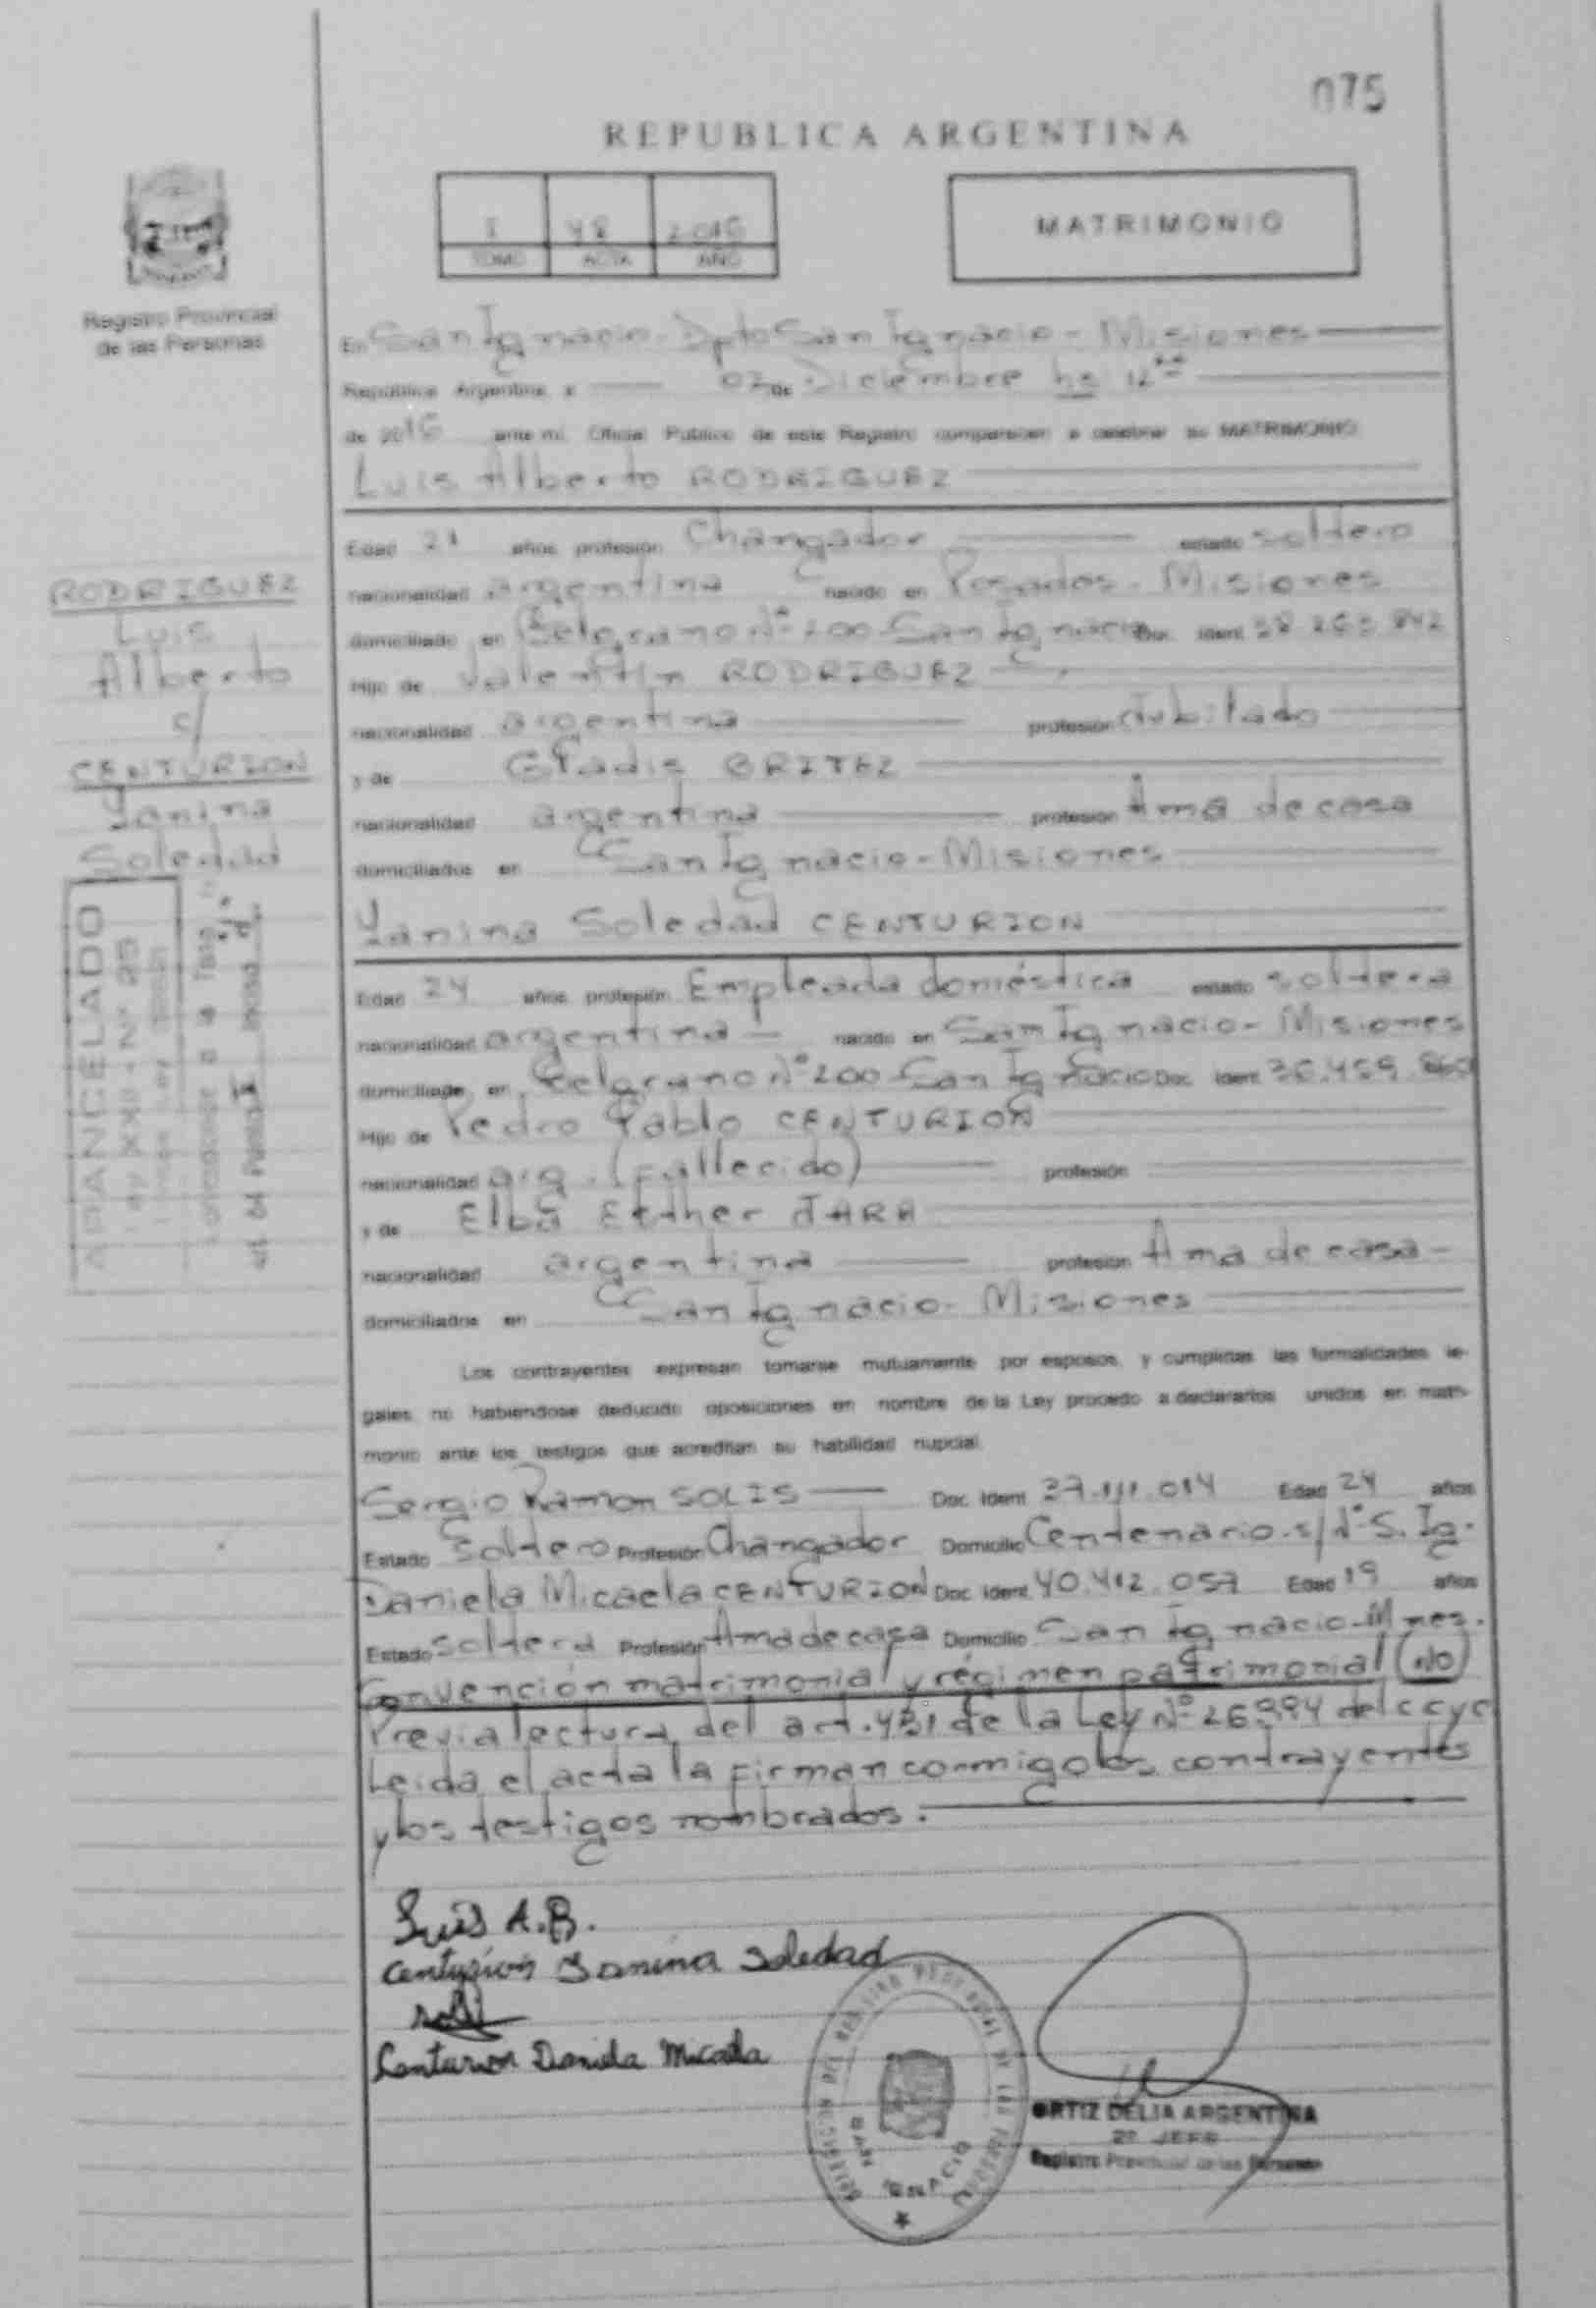 075
REPUBLICA ARGENTINA
I 48 2016
TOMO ACTA AÑO
MATRIMONIO
Registro Provincial
de las Personas
En San Ignacio - Dpto San Ignacio - Misiones
República Argentina, a 02 de Diciembre hs 12
de 2016 ante mi, Oficial Público de este Registro comparecen a celebrar su MATRIMONIO
Luis Alberto RODRIGUEZ
Edad 21 años profesión Changador estado soltero
nacionalidad argentina nacido en Posadas - Misiones
domiciliado en Belgrano N° 200 San Ignacio Doc. Ident.
Hijo de Valentin RODRIGUEZ
nacionalidad argentina profesión Jubilado
y de Gladis BRITEZ
nacionalidad argentina profesión Ama de casa
domiciliados en San Ignacio - Misiones
Yanina Soledad CENTURION
Edad 24 años profesión Empleada doméstica estado soltera
nacionalidad argentina nacido en San Ignacio - Misiones
domiciliado en Belgrano N° 200 San Ignacio Doc. Ident.
Hijo de Pedro Pablo CENTURION
nacionalidad arg. (fallecido) profesión
y de Elba Esther JARA
nacionalidad argentina profesión Ama de casa -
domiciliados en San Ignacio - Misiones
Los contrayentes expresan tomarse mutuamente por esposos, y cumplidas las formalidades le-
gales no habiendose deducido oposiciones en nombre de la Ley procedo a declararlos unidos en matri-
monio ante los testigos que acreditan su habilidad nupcial
Sergio Ramon SOLIS Doc. Ident. 37.111.014 Edad 24 años
Estado Soltero Profesión Changador Domicilio Centenario s/N° S. Ig.
Daniela Micaela CENTURION Doc. Ident. 40.412.057 Edad 19 años
Estado Soltera Profesión Ama de casa Domicilio San Ignacio - Mnes.
Convención matrimonial y régimen patrimonial (NO)
Previa lectura del art. 431 de la Ley N° 26.994 del ccyc
Leida el acta la firman conmigo los contrayentes
y los testigos nombrados.
RODRIGUEZ
Luis
Alberto
c/
CENTURION
Yanina
Soledad
APANCELADO
Ley XXII - N° 25
Luis A.R.
Centurion Yanina Soledad
Solis
Centurion Daniela Micaela
SAN IGNACIO
ORTIZ DELIA ARGENTINA
2° JEFE
Registro Provincial de las Personas